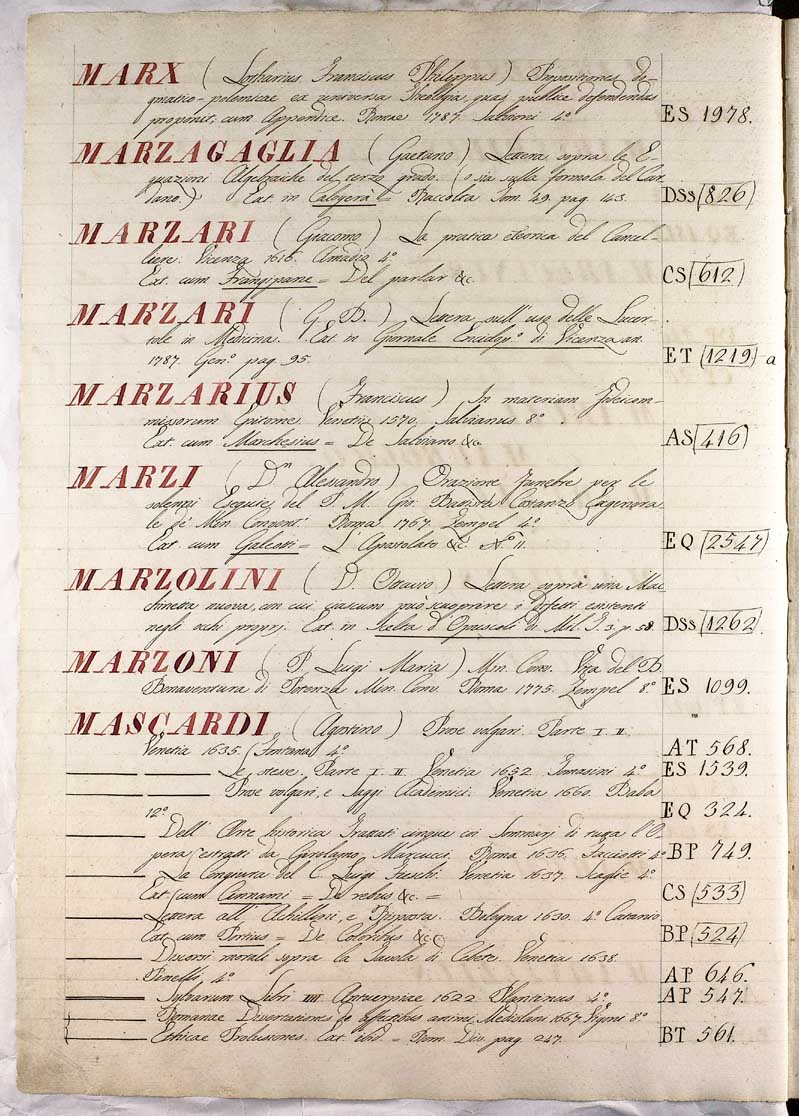 MARX (Lotharius Franciscus Philippus) Positiones do-
gmatico-polemicae ex universa Theologia, quas publice defendendas
proponit, cum Appendice. Romae 1787. Salvioni 4º ES 1978.
MARZAGAGLIA (Gaetano) Lettera sopra le E-
quazioni Algebraiche del terzo grado. (o sia sulla formola del Car-
dano.) Ext. in Calogerà = Raccolta Tom. 49. pag. 143. DSs (826)
MARZARI (Giacomo) La pratica e teorica del Cancel-
liere. Vicenza 1616. Amadio 4º
Ext. cum Frangipane = Del parlar &c. CS (612)
MARZARI (G. B.) Lettera sull'uso delle Lucer-
tole in Medicina. Ext. in Giornale Enciclop.º di Vicenza an.
1787. Gen.º pag. 95. ET (1219)-a
MARZARIUS (Franciscus) In materiam Fideicom-
missorum Epitome. Venetiis 1570. Salvianus 8º
Ext. cum Marchesius = De Salviano &c. AS (416)
MARZI (Dn Alessandro) Orazione funebre per le
solenni Esequie del P. M. Gio. Battista Costanzo Exgenera
le de' Min. Convent. Roma 1767. Zempel 4º
Ext. cum Galeotti = L'Apostolato &c. Nº 11. EQ (2547)
MARZOLINI (D. Ottavio) Lettera sopra una Mac
chinetta nuova, con cui ciascuno può scuoprire i difetti esistenti
negli occhi proprj. Ext. in Scelta d'Opuscoli di Mil. T. 3. p. 58. DSs (1262)
MARZONI (P. Luigi Maria) Min. Conv. Vita del B.
Bonaventura di Potenza Min. Conv. Roma 1775. Zempel 8º ES 1099.
MASCARDI (Agostino) Prose volgari. Parte I. II.
Venetia 1635. (Fontana) 4º AT 568.
Le stesse. Parte I. II. Venetia 1652. Tomasini 4º ES 1539.
Prose volgari, e Saggi Academici. Venetia 1660. Baba
12º EQ 324.
Dell'Arte historica Trattati cinque coi Sommarj di tutta l'O
pera estratti da Girolamo Marcucci. Roma 1636. Facciotti 4º BP 749.
La Congiura del C. Luigi Fieschi. Venetia 1637. Scaglie 4º
Ext. cum = De rebus &c. = CS (533)
Lettera all'Achillini, e Risposta. Bologna 1630. 4º Catanio
Ext. cum Portius = De Coloribus &c. BP (524)
Discorsi morali sopra la Tavola di Cebete. Venetia 1638.
Pinelli 4º AP 646.
Sylvarum Libri IIII. Antuerpiae 1622. Plantinus 4º AP 547.
Romanae Dissertationes de affectibus animi. Mediolani 1667. Vigoni 8º
Ethicae Prolusiones. Ext. ibid. = Rom. Diss. pag. 247. BT 561.